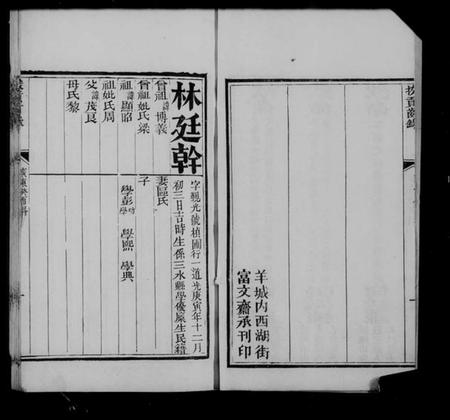 羊城內西湖街
富文齋承刊印
林廷幹
字觀光號植圃行一道光庚寅年十二月
初三日吉時生係三水縣學優廩生民籍
曾祖諱博義
曾祖妣氏梁
祖諱顯昭
祖妣氏周
父諱茂良
母氏黎
妻區氏
子
學彭
學熙
學典